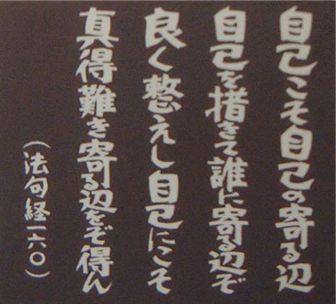 自己こそ自己の寄る辺
自己を措きて誰に寄る辺ぞ
良く整えし自己にこそ
真得難き寄る辺をぞ得ん
(法句経一六〇)